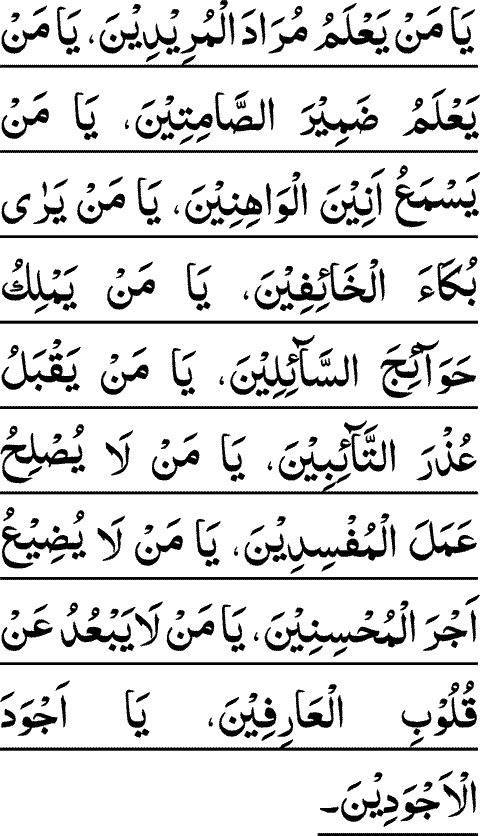 يَا مَنْ يَعْلَمُ مُرَادَ الْمُرِيْدِيْنَ، يَا مَنْ
يَعْلَمُ ضَمِيْرَ الصَّامِتِيْنَ، يَا مَنْ
يَسْمَعُ اَنِيْنَ الْوَاهِنِيْنَ، يَا مَنْ يَرٰى
بُكَاءَ الْخَائِفِيْنَ، يَا مَنْ يَمْلِكُ
حَوَآئِجَ السَّآئِلِيْنَ، يَا مَنْ يَقْبَلُ
عُذْرَ التَّآئِبِيْنَ، يَا مَنْ لَا يُصْلِحُ
عَمَلَ الْمُفْسِدِيْنَ، يَا مَنْ لَا يُضِيْعُ
اَجْرَ الْمُحْسِنِيْنَ، يَا مَنْ لَا يَبْعُدُ عَنْ
قُلُوْبِ الْعَارِفِيْنَ، يَا اَجْوَدَ
الْاَجْوَدِيْنَ۔